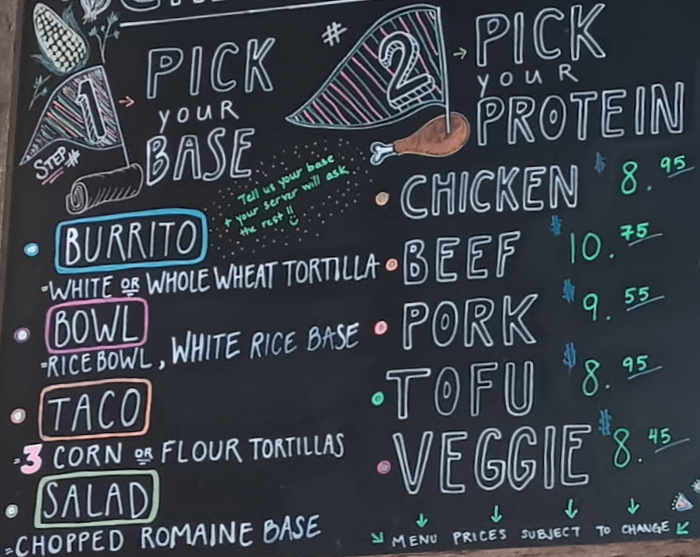 1
PICK
YOUR
BASE
STEP #
Tell us your base
+ your server will ask
the rest!!
BURRITO
-WHITE OR WHOLE WHEAT TORTILLA
BOWL
-RICE BOWL, WHITE RICE BASE
TACO
-3 CORN OR FLOUR TORTILLAS
SALAD
-CHOPPED ROMAINE BASE
#2
PICK
YOUR
PROTEIN
CHICKEN $8.95
BEEF $10.75
PORK $9.55
TOFU $8.95
VEGGIE $8.45
MENU PRICES SUBJECT TO CHANGE